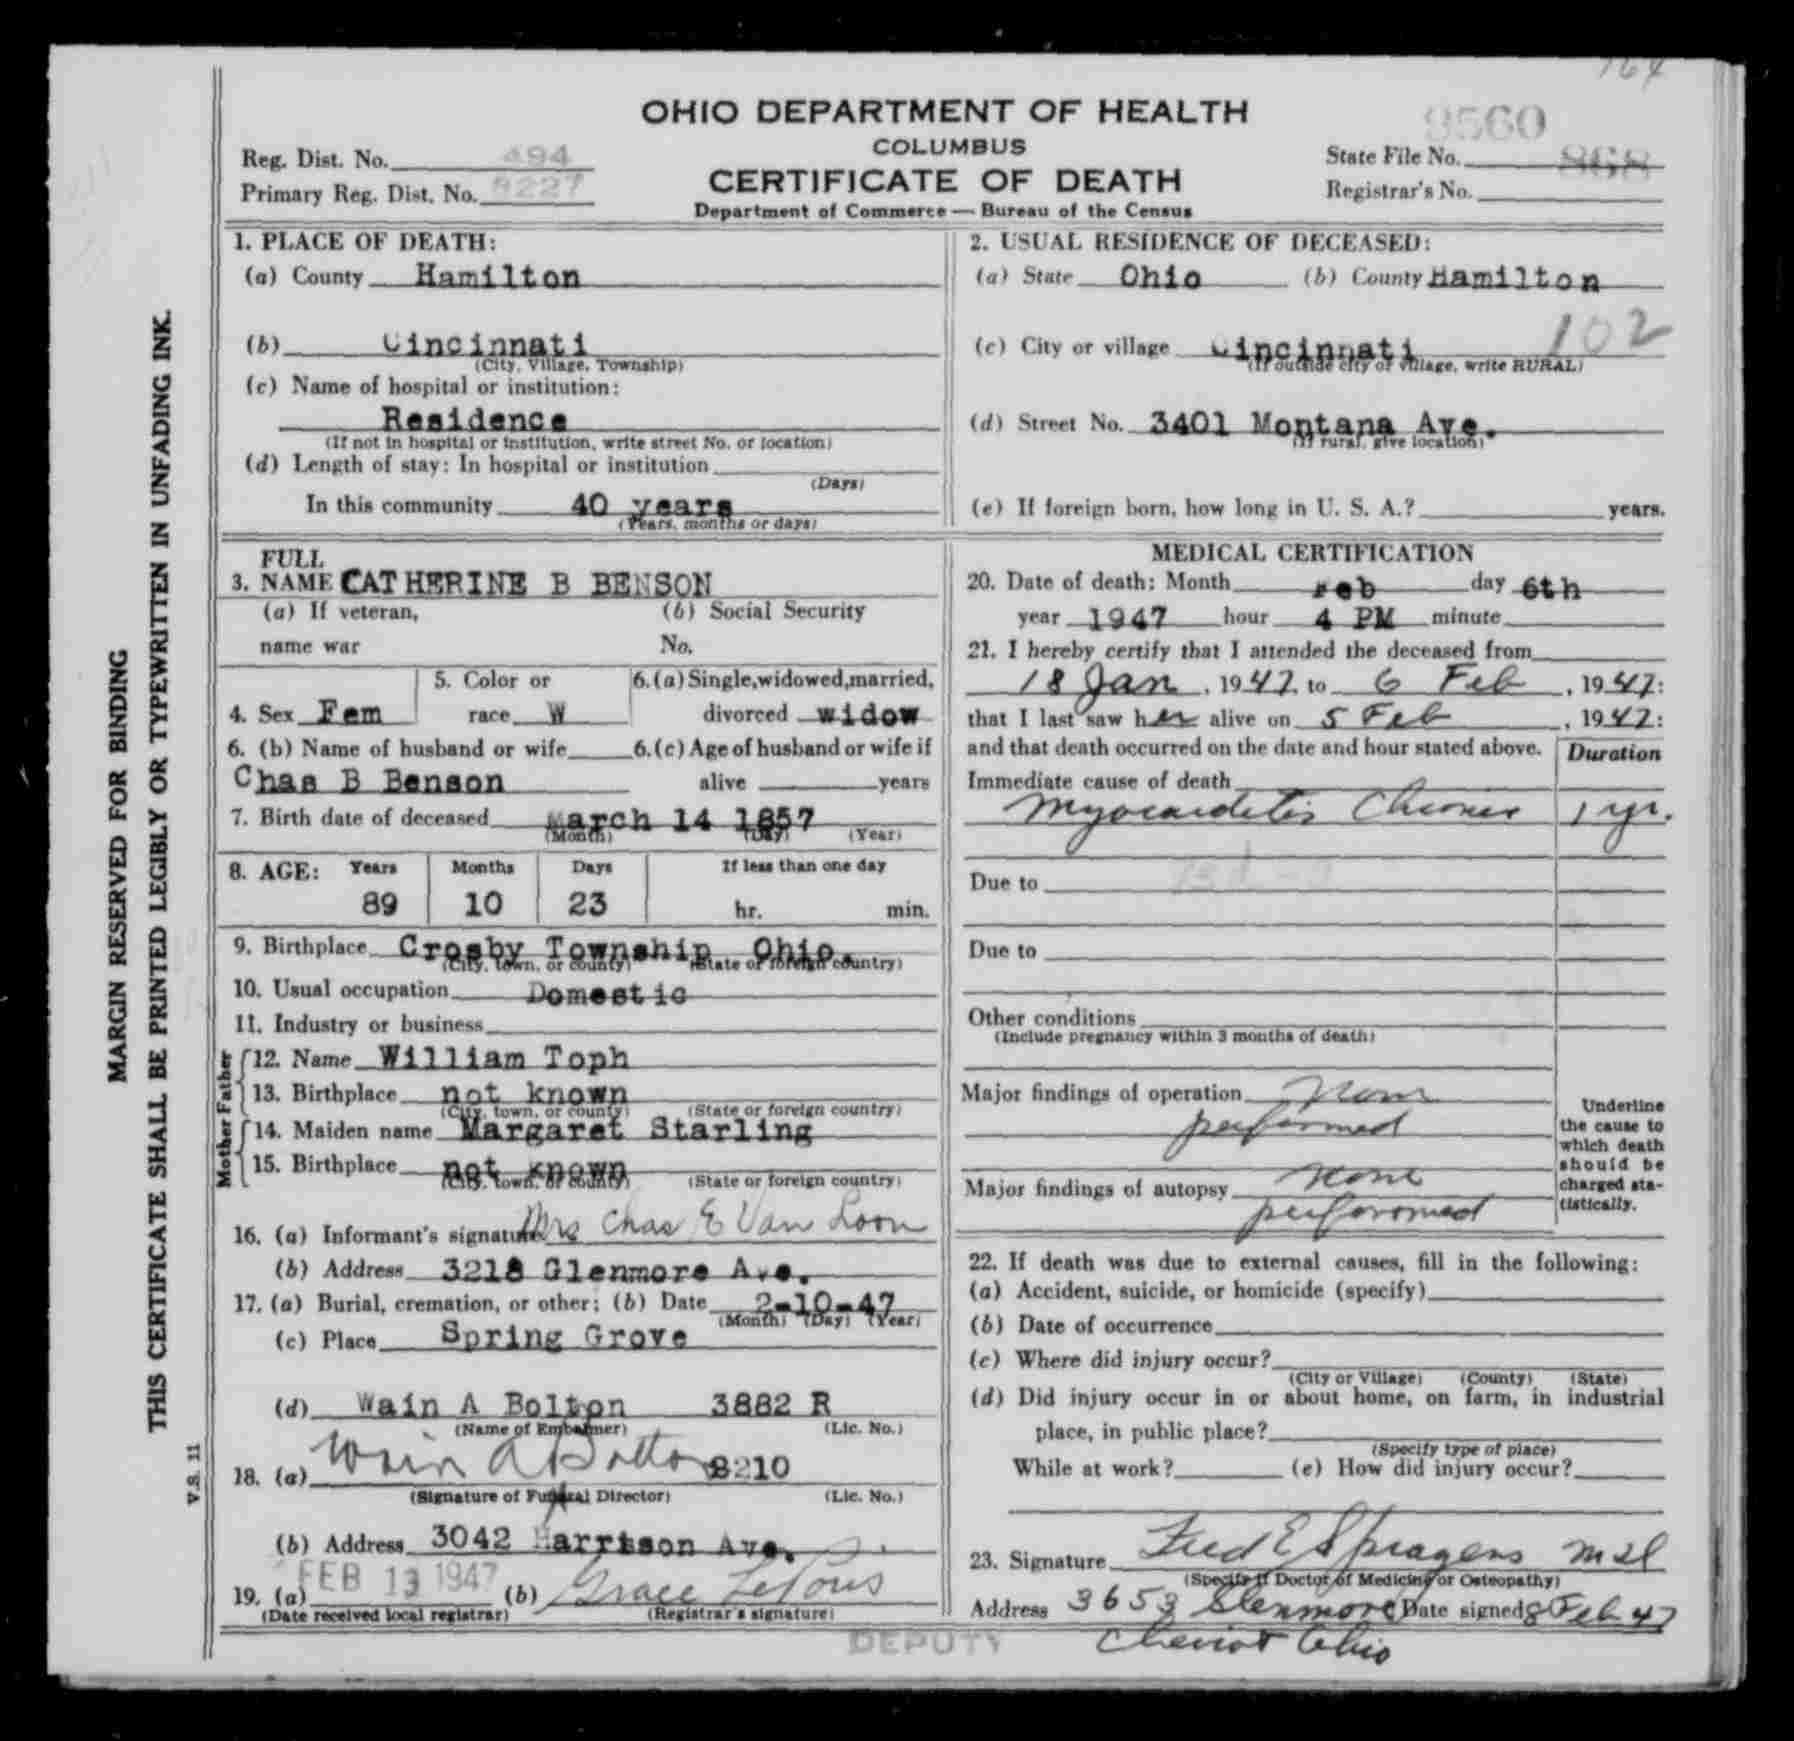 OHIO DEPARTMENT OF HEALTH
COLUMBUS
CERTIFICATE OF DEATH
Department of Commerce — Bureau of the Census
Reg. Dist. No. 494
Primary Reg. Dist. No. 8227
9560
State File No. 868
Registrar's No.
MARGIN RESERVED FOR BINDING
THIS CERTIFICATE SHALL BE PRINTED LEGIBLY OR TYPEWRITTEN IN UNFADING INK.
V.S. 11
1. PLACE OF DEATH:
(a) County Hamilton
(b) Cincinnati
(City, Village, Township)
(c) Name of hospital or institution:
Residence
(If not in hospital or institution, write street No. or location)
(d) Length of stay: In hospital or institution
(Days)
In this community 40 years
(Years, months or days)
2. USUAL RESIDENCE OF DECEASED:
(a) State Ohio (b) County Hamilton
102
(c) City or village Cincinnati
(If outside city or village, write RURAL)
(d) Street No. 3401 Montana Ave.
(If rural, give location)
(e) If foreign born, how long in U. S. A.? years.
FULL
3. NAME CATHERINE B BENSON
(a) If veteran, (b) Social Security
name war No.
4. Sex Fem
5. Color or
race W
6. (a) Single, widowed, married,
divorced widow
6. (b) Name of husband or wife 6. (c) Age of husband or wife if
Chas B Benson alive years
7. Birth date of deceased March 14 1857
(Month) (Day) (Year)
8. AGE: Years Months Days If less than one day
89 10 23 hr. min.
9. Birthplace Crosby Township Ohio.
(City, town, or county) (State or foreign country)
10. Usual occupation Domestic
11. Industry or business
Father
12. Name William Toph
13. Birthplace not known
(City, town, or county) (State or foreign country)
Mother
14. Maiden name Margaret Starling
15. Birthplace not known
(City, town, or county) (State or foreign country)
16. (a) Informant's signature Mrs Chas E Van Loon
(b) Address 3218 Glenmore Ave.
17. (a) Burial, cremation, or other; (b) Date 2-10-47
(Month) (Day) (Year)
(c) Place Spring Grove
(d) Wain A Bolton 3882 R
(Name of Embalmer) (Lic. No.)
18. (a) Wain A Bolton 8210
(Signature of Funeral Director) (Lic. No.)
(b) Address 3042 Harrison Ave.
19. (a) FEB 13 1947 (b) Grace
(Date received local registrar) (Registrar's signature)
DEPUTY
MEDICAL CERTIFICATION
20. Date of death: Month Feb day 6th
year 1947 hour 4 PM minute
21. I hereby certify that I attended the deceased from
18 Jan, 1947, to 6 Feb, 1947:
that I last saw her alive on 5 Feb, 1947:
and that death occurred on the date and hour stated above. Duration
Immediate cause of death
Myocarditis Chronic 1 yr.
Due to
Due to
Other conditions
(Include pregnancy within 3 months of death)
Major findings of operation None
performed
Major findings of autopsy None
performed
Underline
the cause to
which death
should be
charged sta-
tistically.
22. If death was due to external causes, fill in the following:
(a) Accident, suicide, or homicide (specify)
(b) Date of occurrence
(c) Where did injury occur?
(City or Village) (County) (State)
(d) Did injury occur in or about home, on farm, in industrial
place, in public place?
(Specify type of place)
While at work? (e) How did injury occur?
23. Signature Fred E Spragens MD
(Specify if Doctor of Medicine or Osteopathy)
Address 3653 Glenmore Date signed 8 Feb 47
Cheviot Ohio